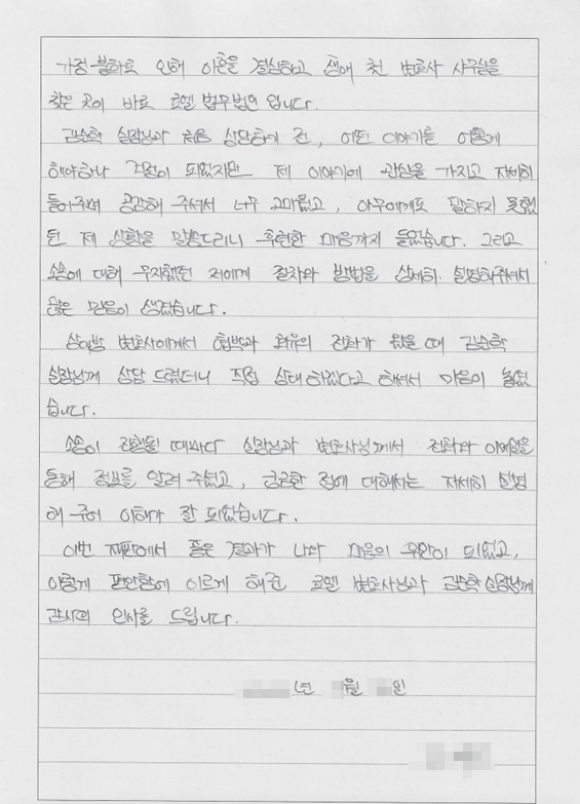 가정불화로 인해 이혼을 결심하고 생애 첫 변호사 사무실을
찾은 곳이 바로 로엘 법무법인 입니다.
김순학 실장님과 처음 상담하기 전, 어떤 이야기를 어떻게
해야하나 걱정이 되었지만 제 이야기에 관심을 가지고 자세히
들어주며 공감해 주셔서 너무 고마웠고, 아무에게도 말하지 못했
던 제 상황을 말씀드리니 후련한 마음까지 들었습니다. 그리고
소송에 대해 무지했던 저에게 절차와 방법을 상세히 설명해주셔서
많은 믿음이 생겼습니다.
상대방 변호사에게서 협박과 회유의 전화가 왔을 때 김순학
실장님께 상담 드렸더니 직접 상대하겠다고 하셔서 마음이 놓였
습니다.
소송이 진행될 때마다 실장님과 변호사님께서 전화와 이메일을
통해 정보를 알려 주었고, 궁금한 점에 대해서는 자세히 설명
해 주어 이해가 잘 되었습니다.
이번 재판에서 좋은 결과가 나와 마음의 위안이 되었고,
이렇게 편안함에 이르게 해준 로엘 변호사님과 김순학 실장님께
감사의 인사를 드립니다.
년 월 일